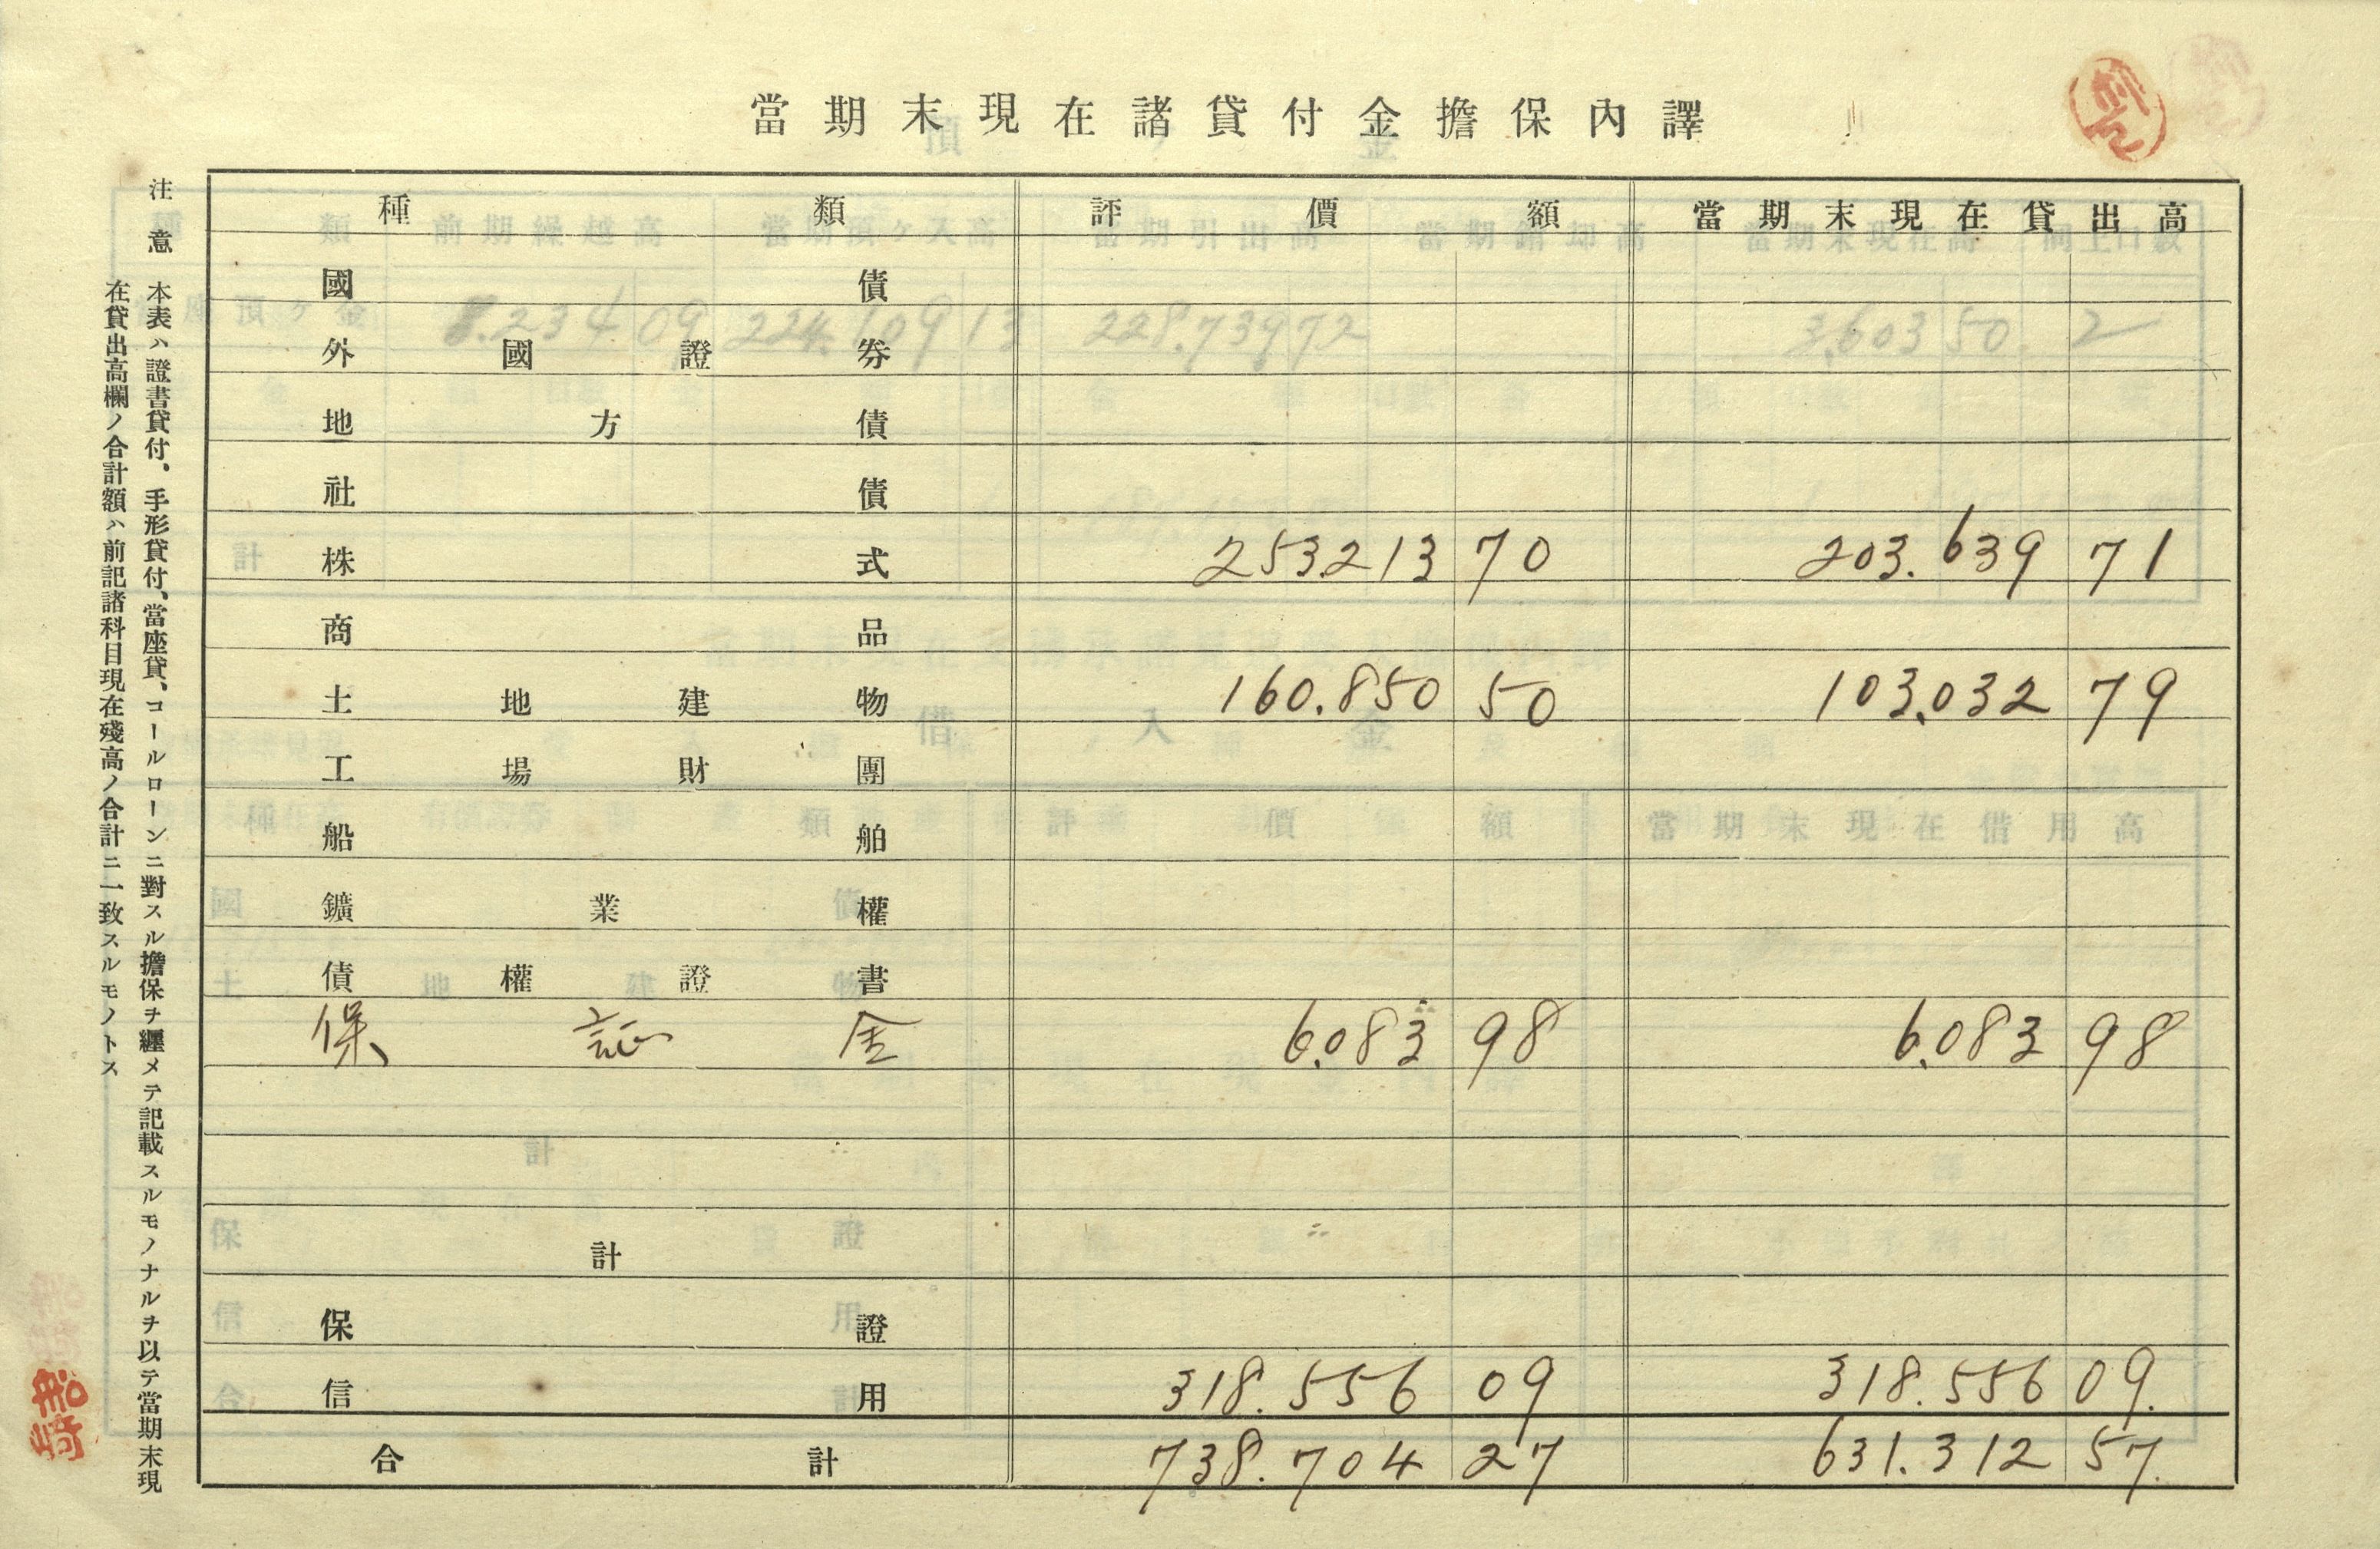 當期末現在諸貸付金擔保內譯
種類 評價額 當期末現在貸出高
國債
外國證券
地方債
社債
株式 253.213 70 203.639 71
商品
土地建物 160.850 50 103.032 79
工場財團
船舶
鑛業權
債權證書
保証金 6.083 98 6.083 98
計
保證
信用 318.556 09 318.556 09.
合計 738.704 27 631.312 57.
注意 本表ハ證書貸付、手形貸付、當座貸、コールローンニ對スル擔保ヲ纒メテ記載スルモノナルヲ以テ當期末現
在貸出高欄ノ合計額ハ前記諸科目現在殘高ノ合計ニ一致スルモノトス